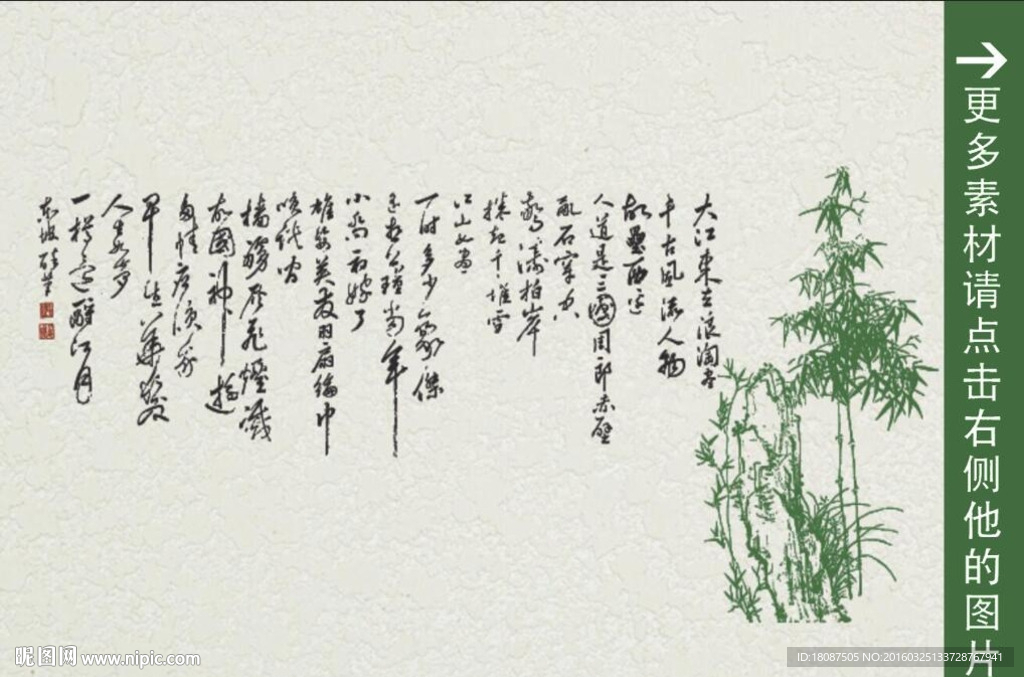 大江東去浪淘尽
千古風流人物
故壘西边
人道是三國周郎赤壁
乱石穿空
驚濤拍岸
捲起千堆雪
江山如畫
一时多少豪傑
遥想公瑾当年
小喬初嫁了
雄姿英发羽扇綸巾
檣艣灰飛煙滅
故國神遊
多情应
早生華髮
人生如夢
一樽還酹江月
东坡
→更多素材请点击右侧他的图片
昵图网 www.nipic.com
ID:18087505 NO:20160325133728767941